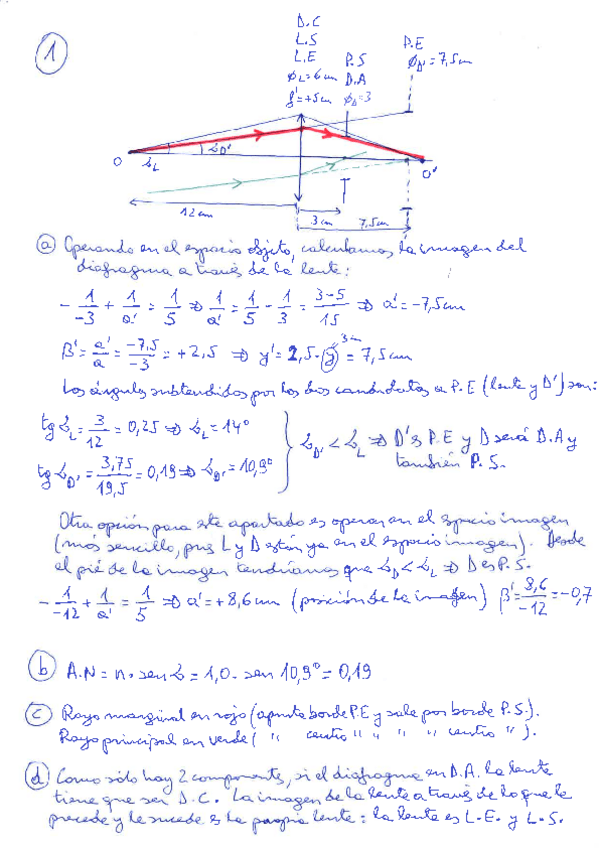 1
D.C
L.S
L.E P.S
P.E
ϕL=6cm D.A
ϕD'=7,5cm
f'=+5cm ϕD=3
O αL αD' O'
12cm
3cm
7,5cm
a) Operando en el espacio objeto, calculamos la imagen del
diafragma a través de la lente:
- 1/-3 + 1/a' = 1/5 ⇒ 1/a' = 1/5 - 1/3 = 3-5/15 ⇒ a' = -7,5cm
β' = a'/a = -7,5/-3 = +2,5 ⇒ y' = 2,5·(y) 3cm = 7,5cm
Los ángulos subtendidos por los dos candidatos a P.E (lente y D') son:
tg αL = 3/12 = 0,25 ⇒ αL = 14°
tg αD' = 3,75/19,5 = 0,19 ⇒ αD' = 10,9°
αD' < αL ⇒ D' es P.E y D será D.A y
también P.S.
Otra opción para este apartado es operar en el espacio imagen
(más sencillo, pues L y D están ya en el espacio imagen). Desde
el pié de la imagen tendríamos que αD < αL ⇒ D es P.S.
- 1/-12 + 1/a' = 1/5 ⇒ a' = +8,6cm (posición de la imagen) β' = 8,6/-12 = -0,7
b) A.N = n·sen α = 1,0·sen 10,9° = 0,19
c) Rayo marginal en rojo (apunta borde P.E y sale por borde P.S.).
Rayo principal en verde ( " centro " " " " " centro " ).
d) Como sólo hay 2 components, si el diafragma en D.A. la lente
tiene que ser D.C. La imagen de la lente a través de lo que le
precede y le sucede es la propia lente: la lente es L.E. y L.S.